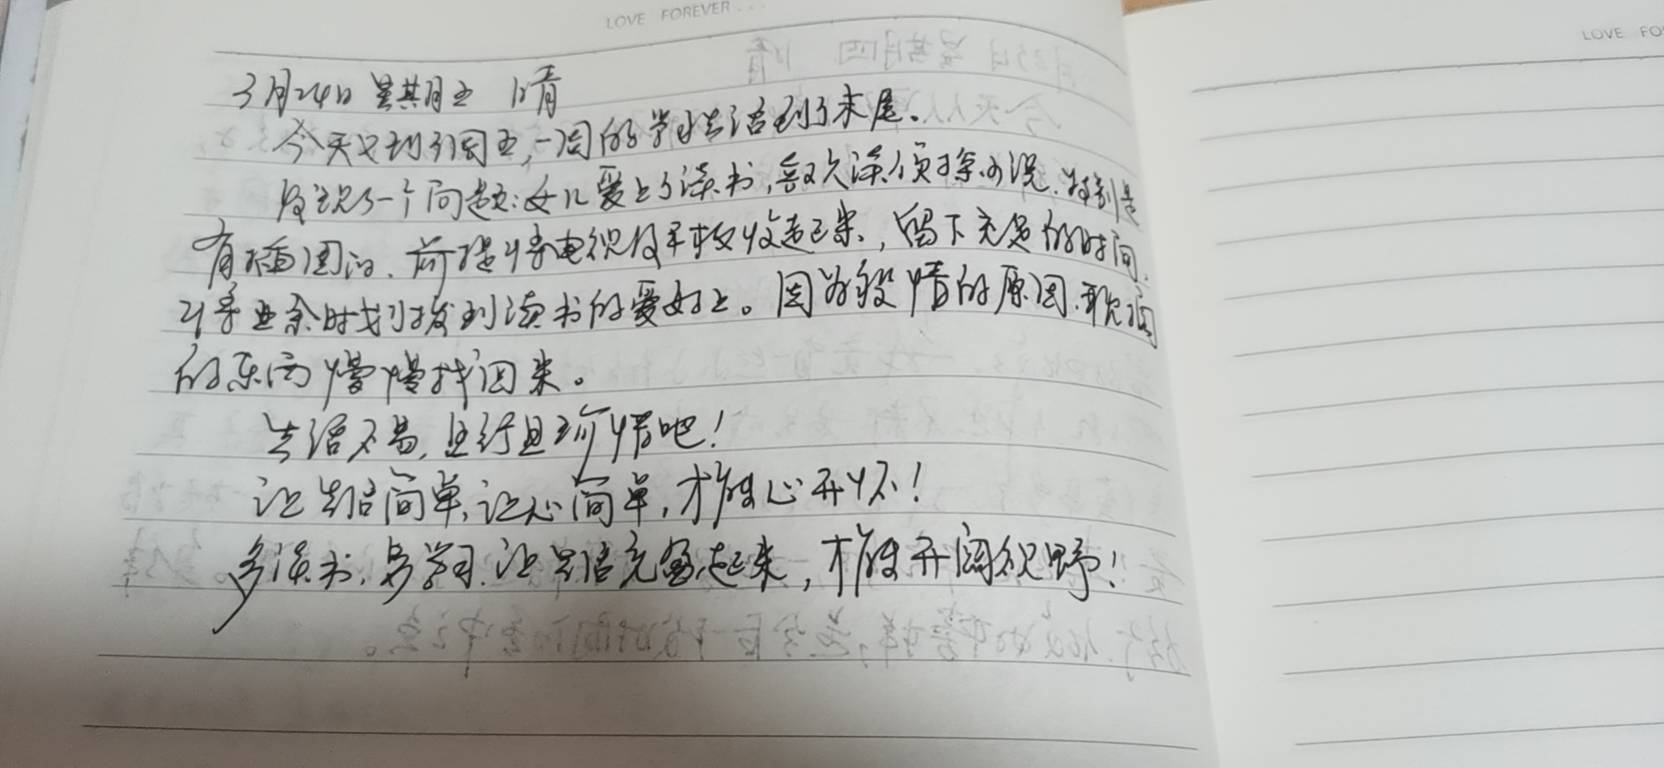 LOVE FOREVER...
LOVE FO
3月24日 星期五 晴
今天又到了周五,一周的学习生活到了末尾。
发现了一个问题:女儿爱上了读书,喜欢读侦探小说.特别是
有插图的.前提将电视及平板收起来,留下充足的时间.
将业余时划拨到读书的爱好上。因为疫情的原因.耽搁
的东西慢慢找回来。
生活不易,且行且珍惜吧!
让生活简单,让心简单,才能心开怀!
多读书.多学习.让生活充盈起来,才能开阔视野!